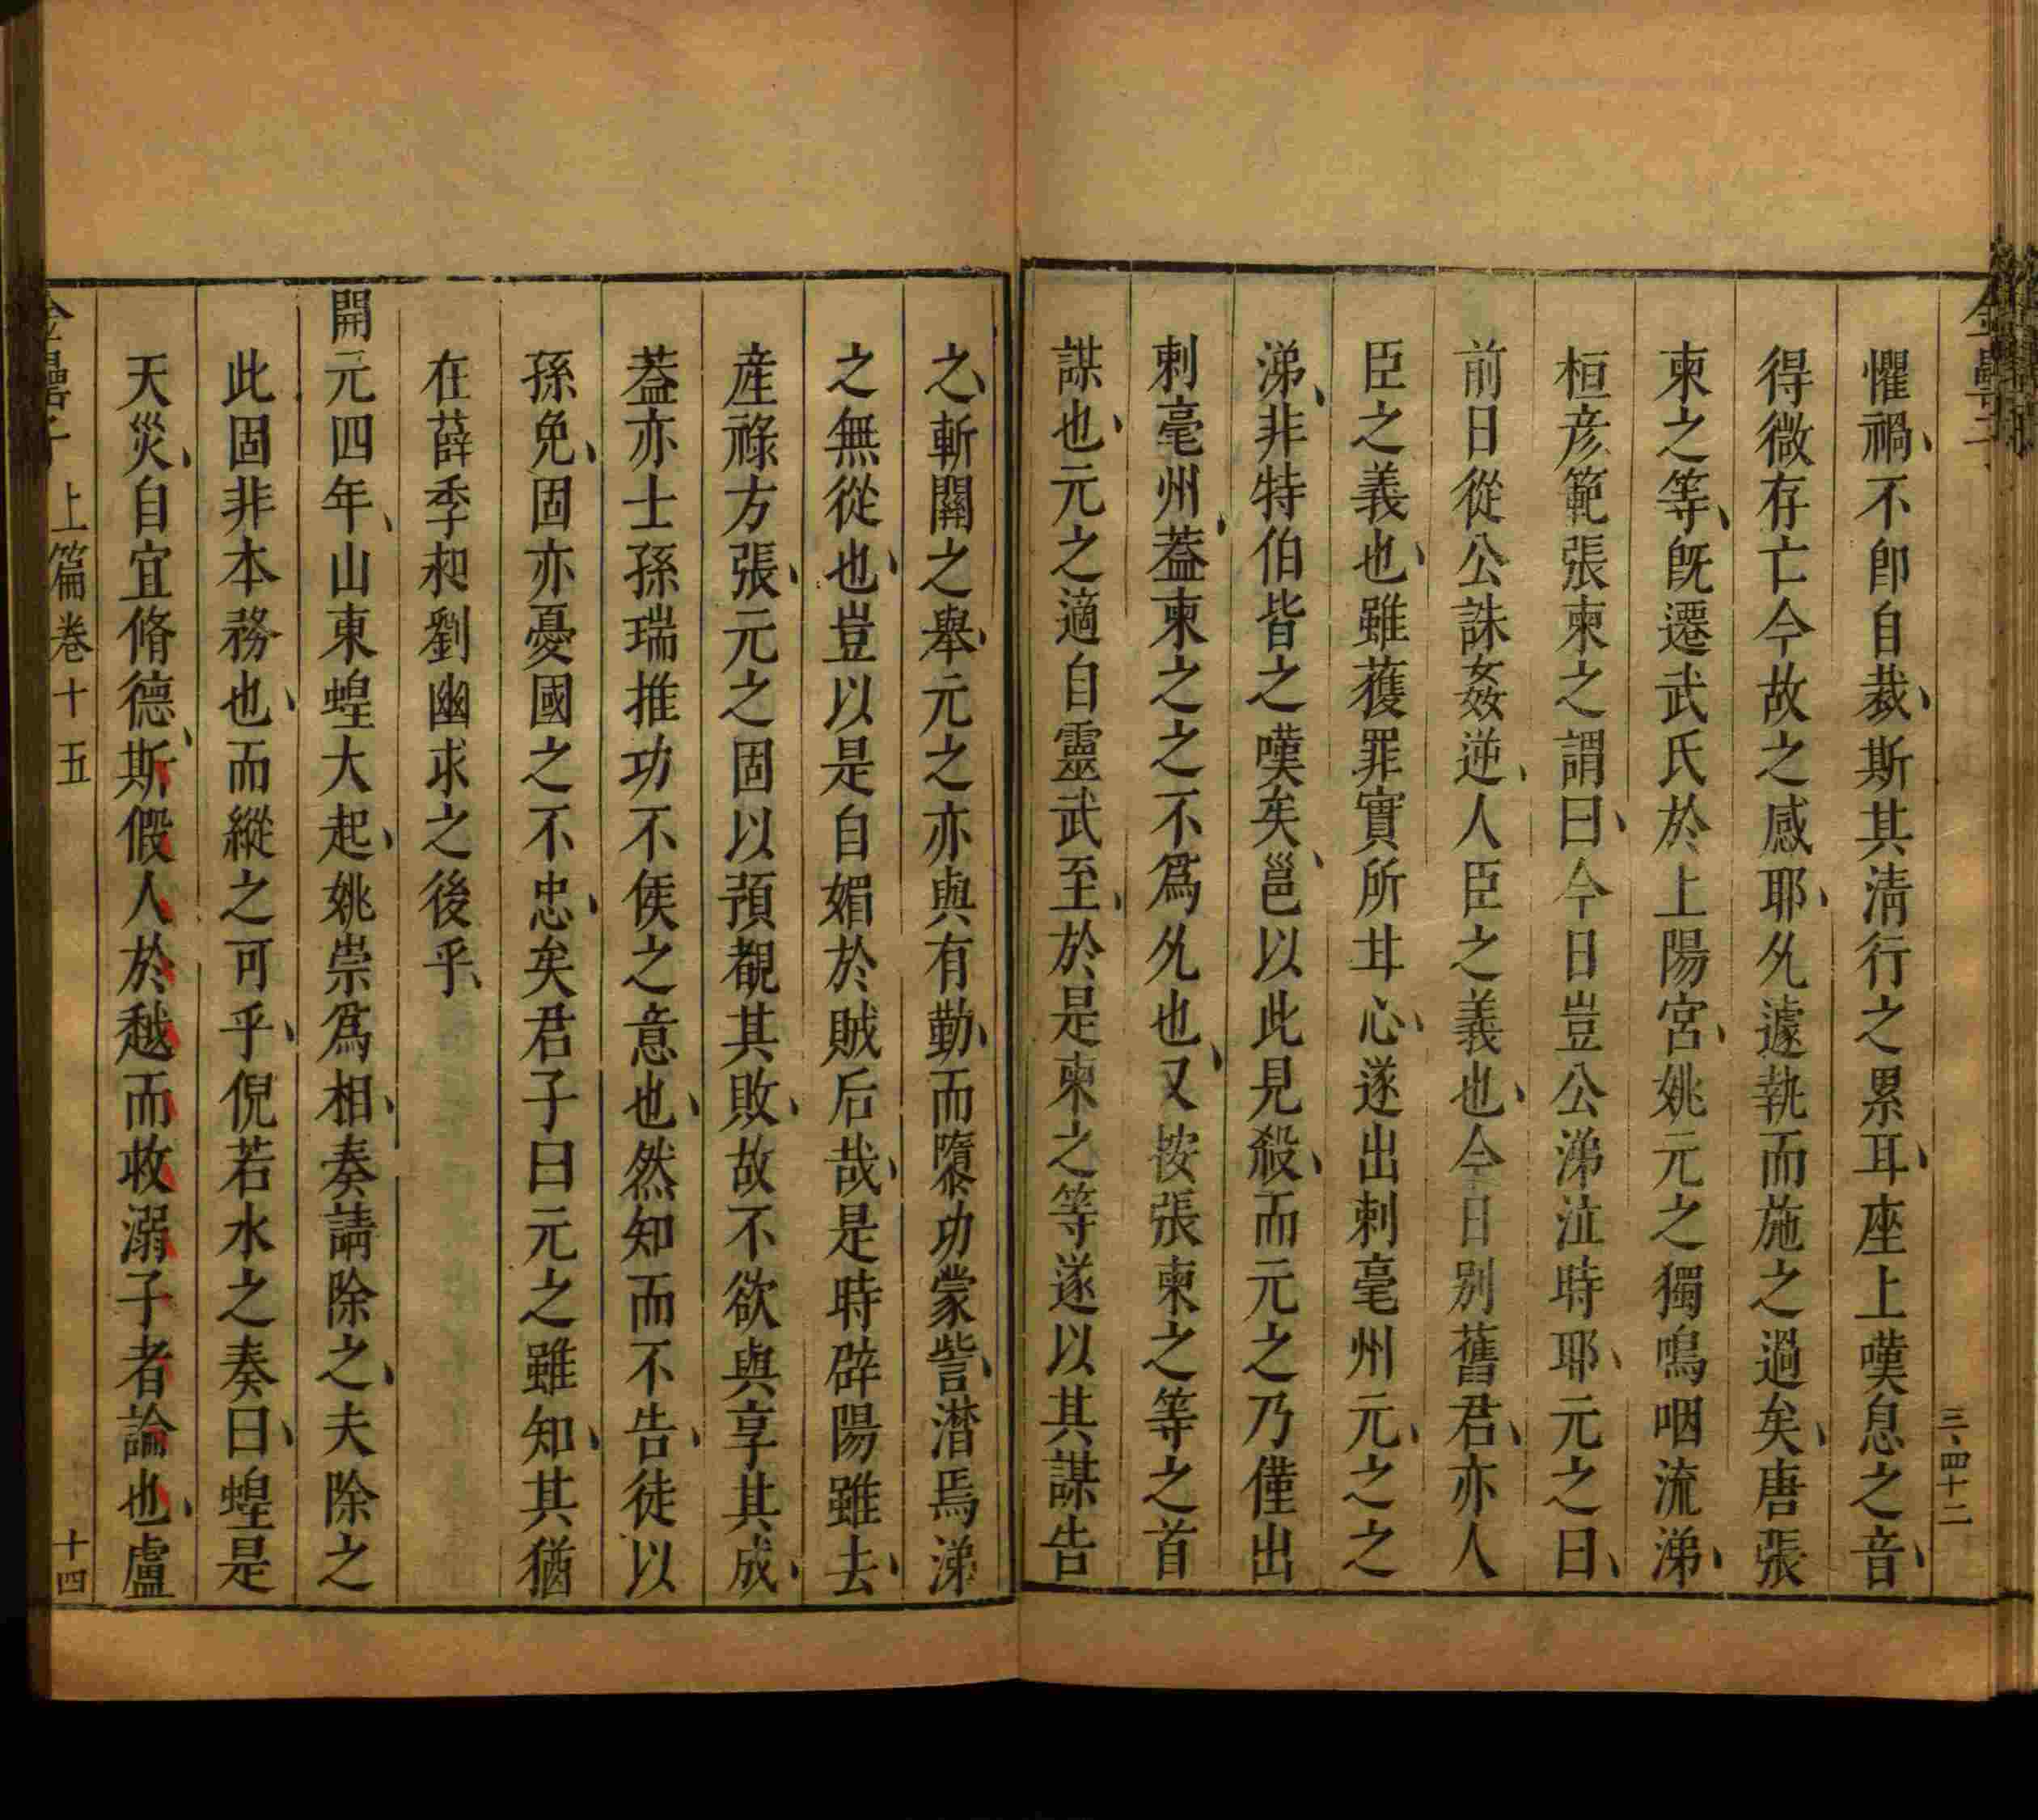 三、四十二
懼禍、不卽自裁、斯其淸行之累耳、座上嘆息之音、
得微存亡今故之感耶、𠃔遽執而施之過矣、唐張
柬之等、旣遷武氏於上陽宮、姚元之獨嗚咽流涕、
桓彦範張柬之謂曰、今日豈公涕泣時耶、元之曰、
前日從公誅姦逆、人臣之義也、今日别舊君、亦人
臣之義也、雖𫉬罪實所甘心、遂出刺亳州、元之之
涕、非特伯喈之嘆矣、邕以此見殺、而元之乃僅出
刺亳州、葢柬之之不爲𠃔也、又按張柬之等之首
謀也、元之適自靈武至、於是柬之等遂以其謀告
之、斬關之舉、元之亦與有勤、而隳功蒙訾、潸焉涕
之無從也、豈以是自媚於賊后哉、是時辟陽雖去、
産祿方張、元之固以預覩其敗、故不欲與享其成、
葢亦士孫瑞推功不矦之意也、然知而不告、徒以
孫免、固亦憂國之不忠、矣君子曰元之雖知、其猶
在薛季昶劉幽求之後乎、
開元四年、山東蝗大起、姚崇爲相、奏請除之、夫除之
此固非本務也、而縱之可乎、倪若水之奏曰、蝗是
天災、自宜脩德、斯假人於越而收溺子者論也、盧
金罍子 上篇卷十五 十四